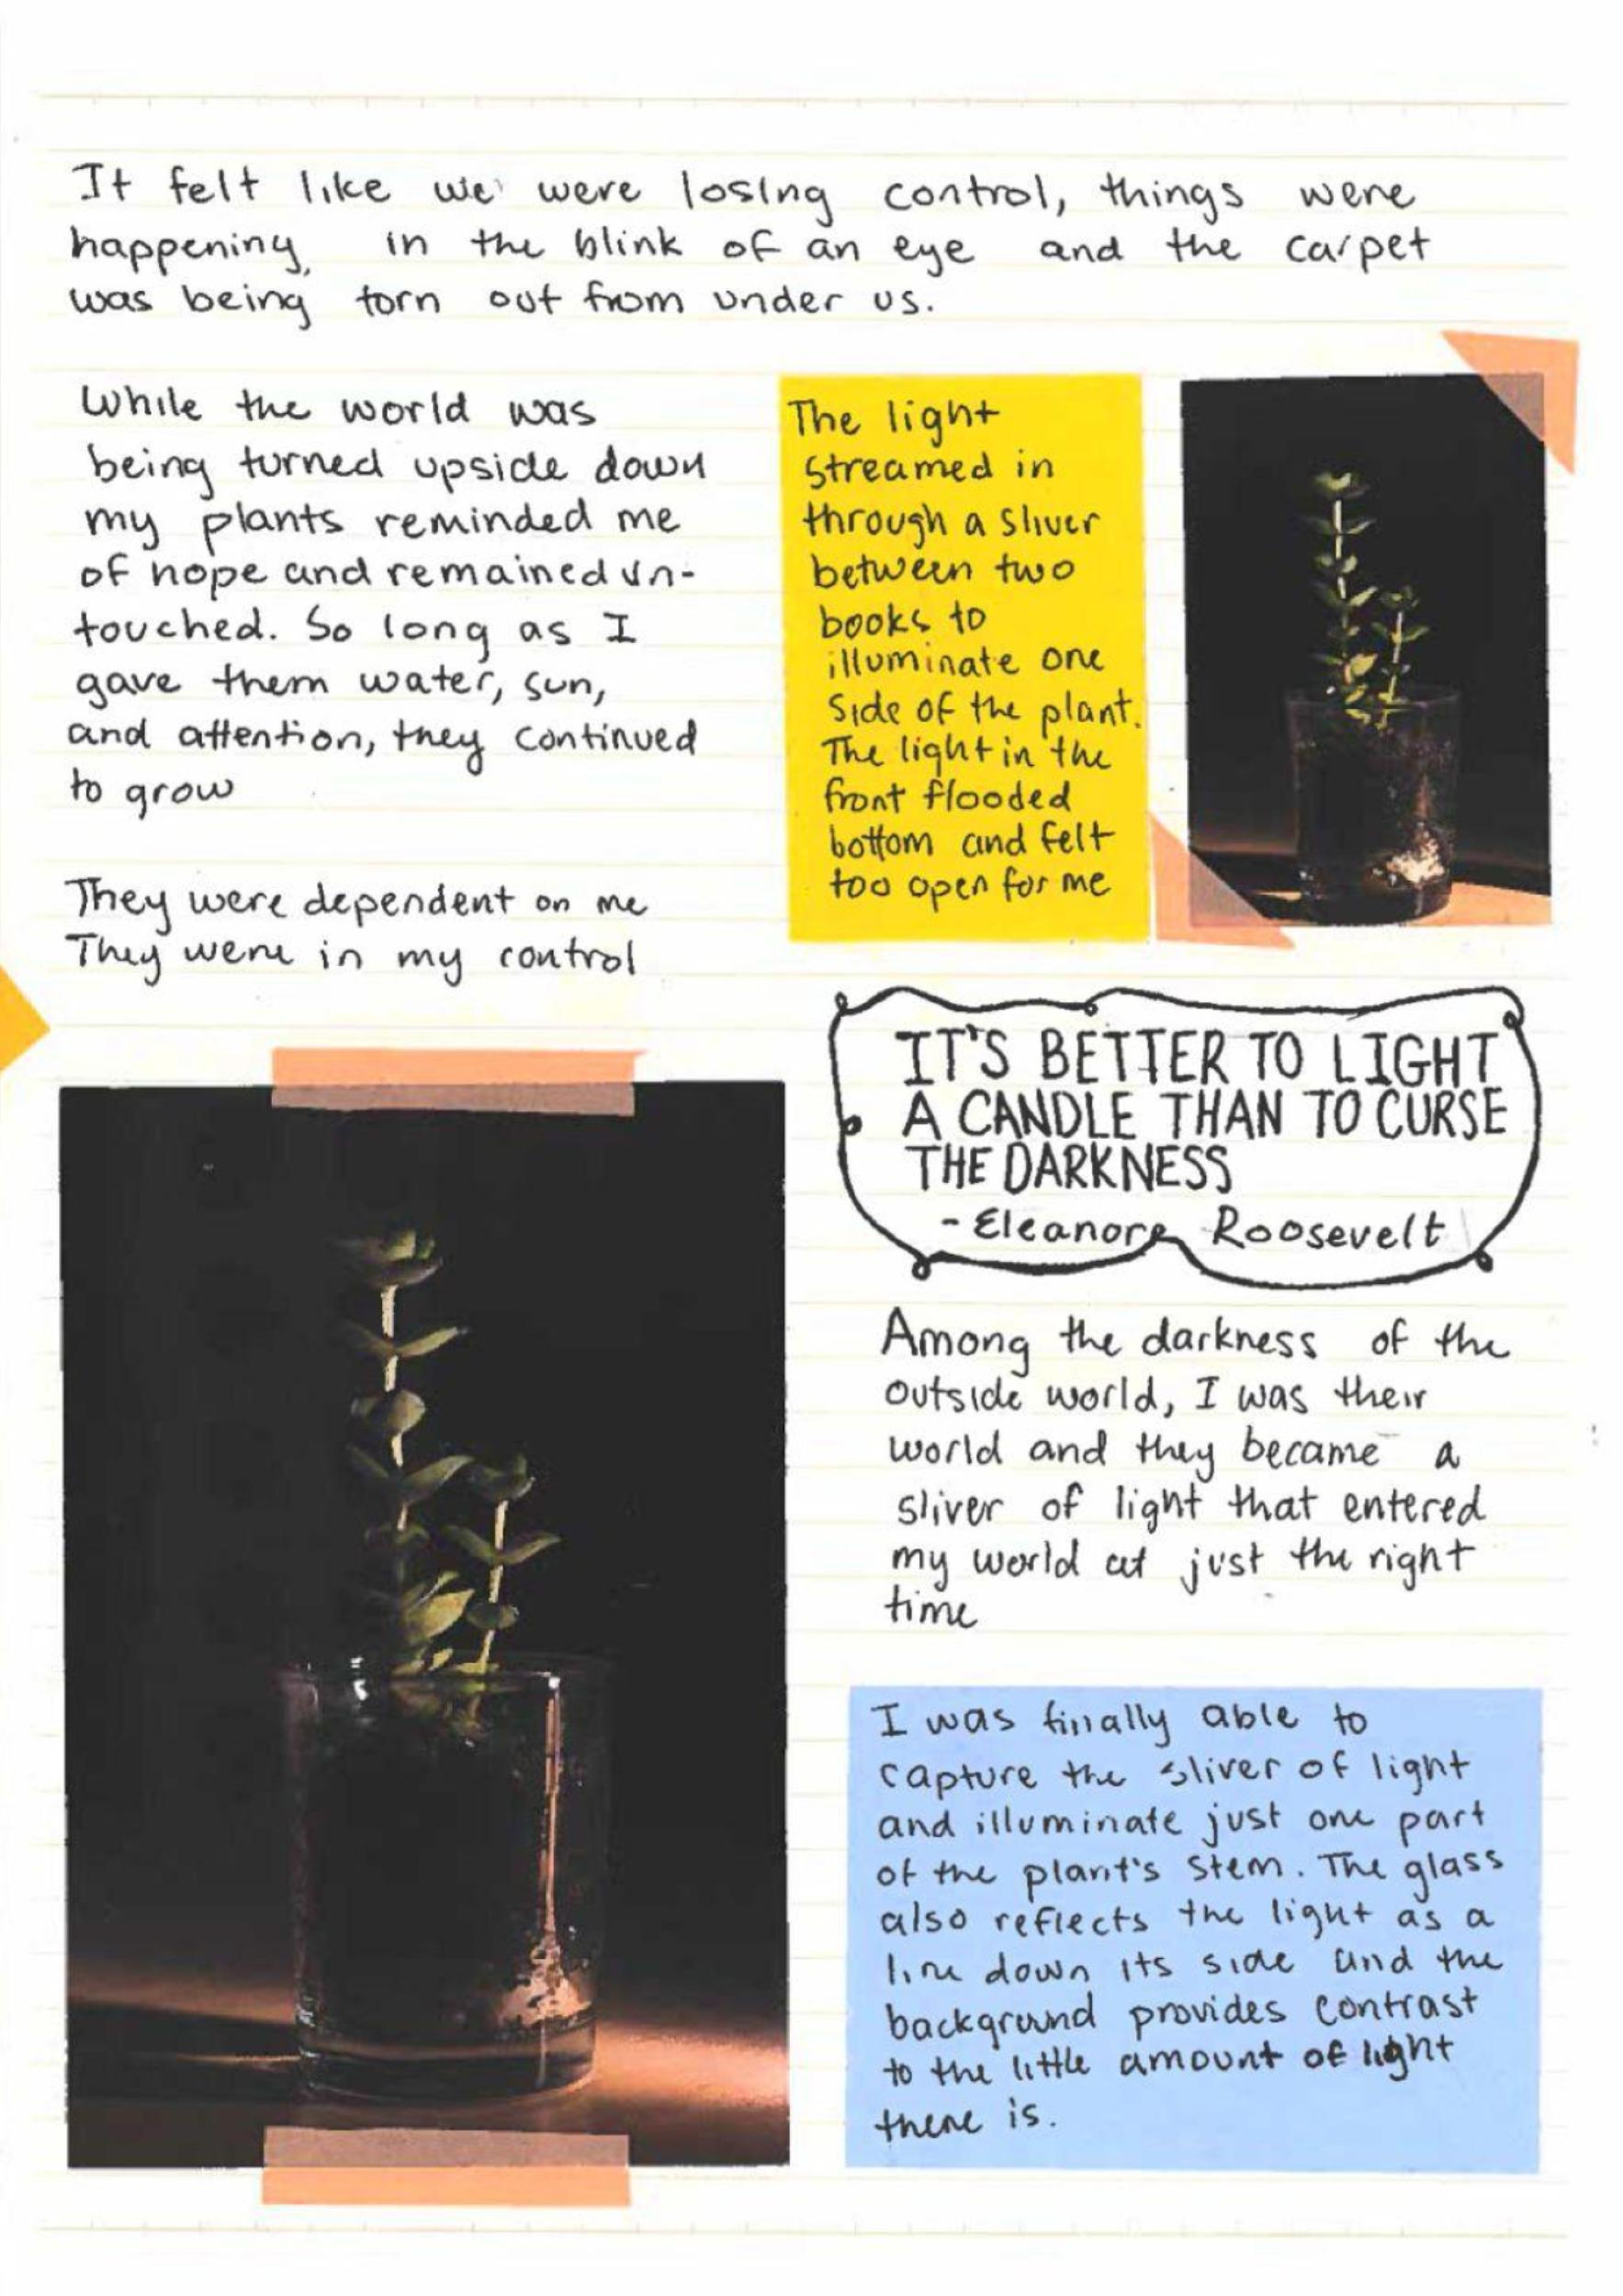 It felt like we were losing control, things were
happening, in the blink of an eye and the carpet
was being torn out from under us.
While the world was
being turned upside down
my plants reminded me
of hope and remained un-
touched. So long as I
gave them water, sun,
and attention, they continued
to grow
They were dependent on me
They were in my control
The light
streamed in
through a sliver
between two
books to
illuminate one
side of the plant.
The light in the
front flooded
bottom and felt
too open for me
IT'S BETTER TO LIGHT
A CANDLE THAN TO CURSE
THE DARKNESS
- Eleanore Roosevelt
Among the darkness of the
outside world, I was their
world and they became a
sliver of light that entered
my world at just the right
time
I was finally able to
capture the sliver of light
and illuminate just one part
of the plant's stem. The glass
also reflects the light as a
line down its side and the
background provides contrast
to the little amount of light
there is.